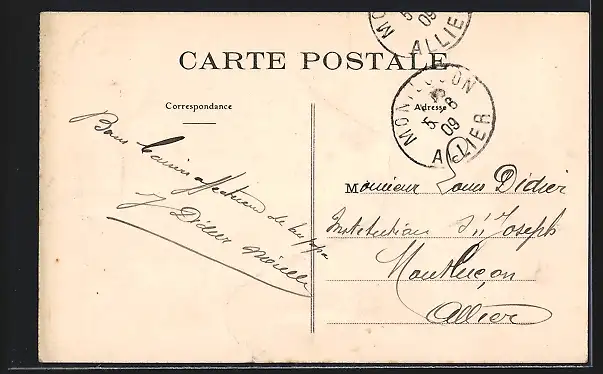 MO
5
09
ALLIER
CARTE POSTALE
MONTLUCON
5 -8
09
ALLIER
Correspondance
Adresse
Bons baisers affectueux de ton papa
J Didier
Monsieur Louis Didier
Institution St Joseph
Montluçon
Allier